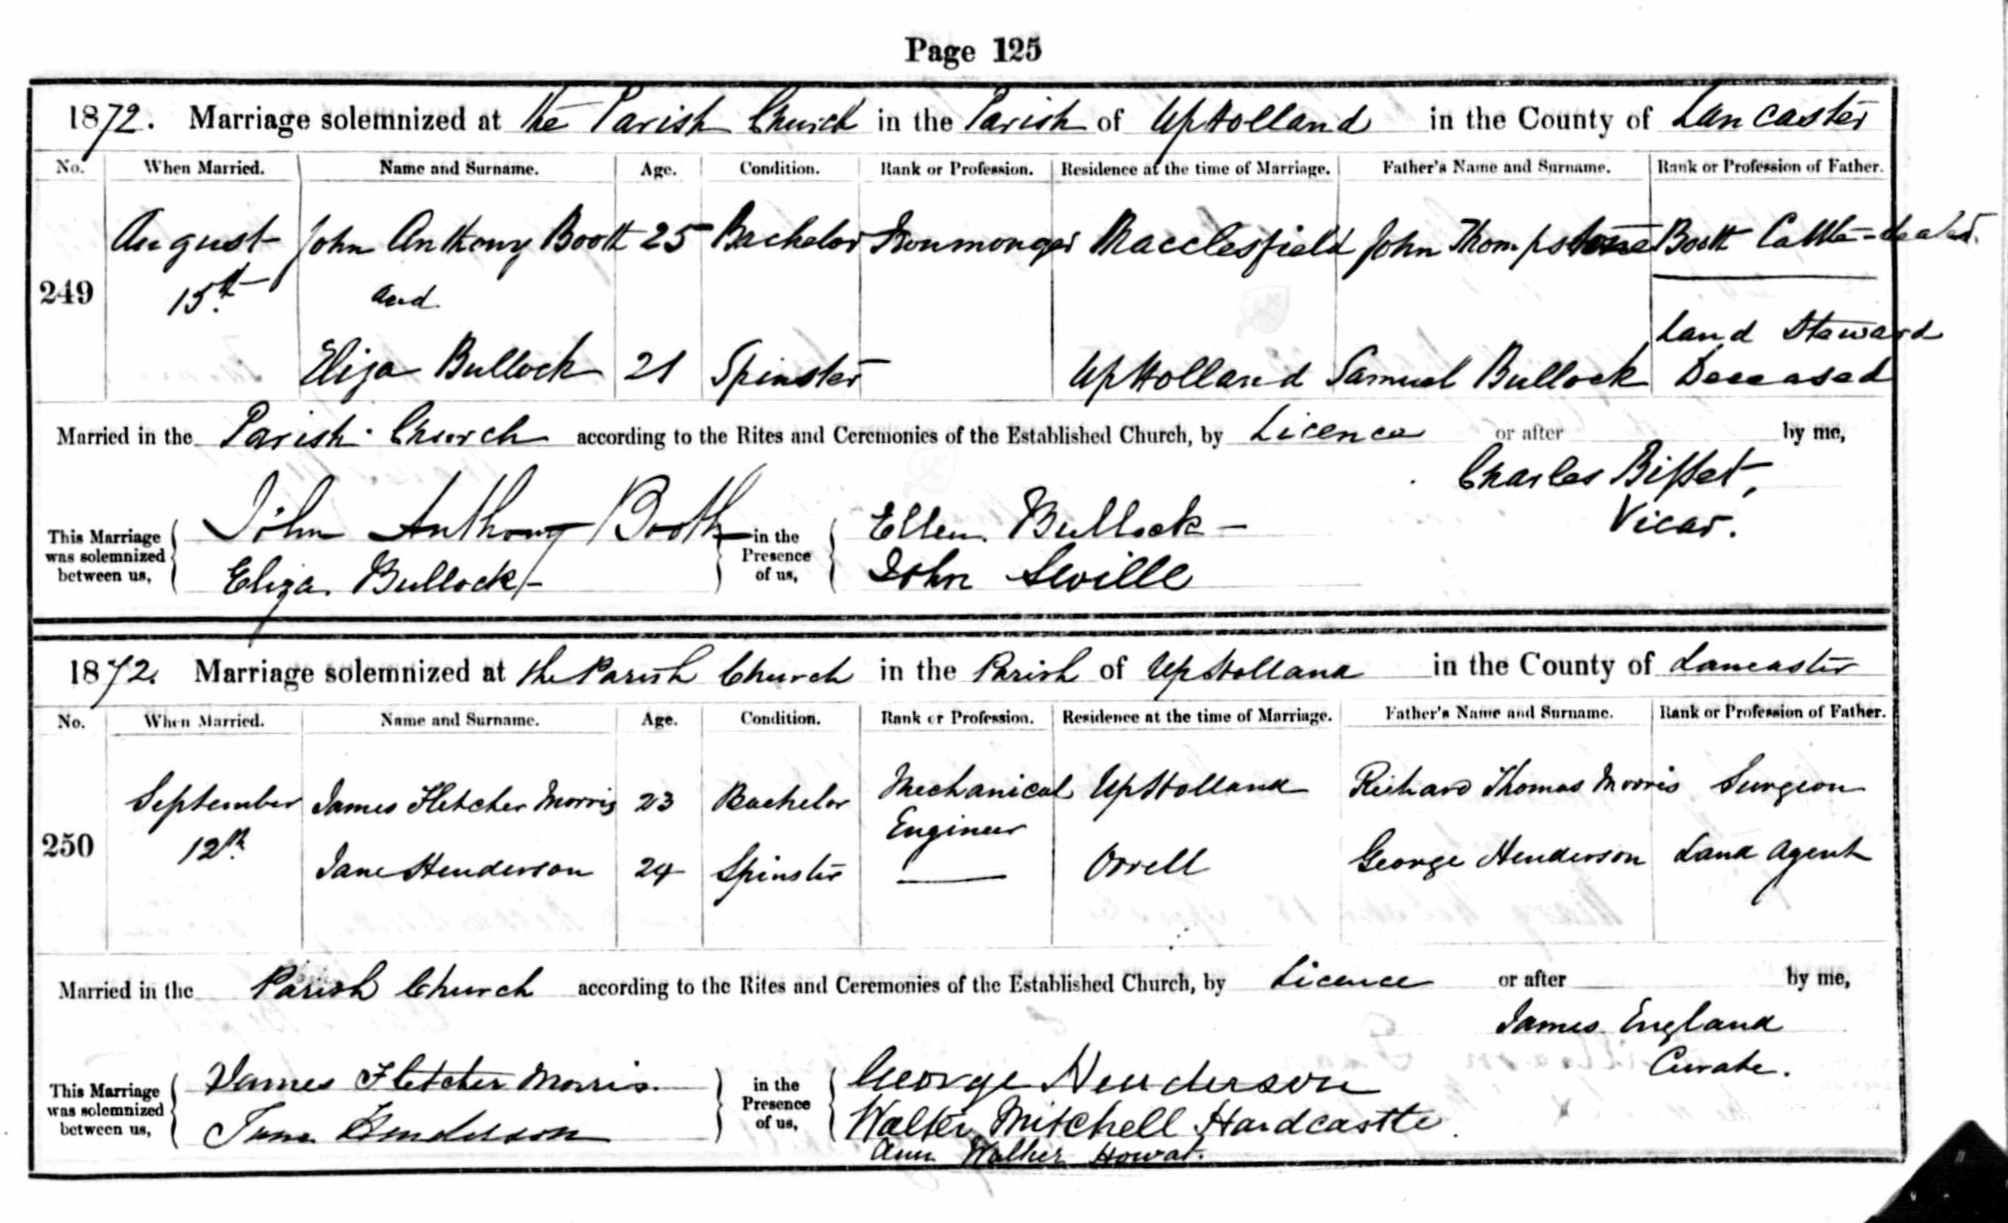 Page 125
1872. Marriage solemnized at the Parish Church in the Parish of UpHolland in the County of Lancaster
No. When Married. Name and Surname. Age. Condition. Rank or Profession. Residence at the time of Marriage. Father's Name and Surname. Rank or Profession of Father.
249 August 15th John Anthony Booth 25 Bachelor Ironmonger Macclesfield John Thompstone Booth Cattle-dealer.
and
Eliza Bullock 21 Spinster UpHolland Samuel Bullock Land Steward Deceased
Married in the Parish Church according to the Rites and Ceremonies of the Established Church, by Licence or after by me,
Charles Bisset,
Vicar.
This Marriage was solemnized between us, John Anthony Booth
Eliza Bullock
in the Presence of us, Ellen Bullock
John Seville
1872. Marriage solemnized at the Parish Church in the Parish of UpHolland in the County of Lancaster
No. When Married. Name and Surname. Age. Condition. Rank or Profession. Residence at the time of Marriage. Father's Name and Surname. Rank or Profession of Father.
250 September 12th James Fletcher Morris 23 Bachelor Mechanical Engineer UpHolland Richard Thomas Morris Surgeon
Jane Henderson 24 Spinster — Orrell George Henderson Land Agent
Married in the Parish Church according to the Rites and Ceremonies of the Established Church, by Licence or after by me,
James England
Curate.
This Marriage was solemnized between us, James Fletcher Morris
Jane Henderson
in the Presence of us, George Henderson
Walter Mitchell Hardcastle.
Ann Walker Howat.